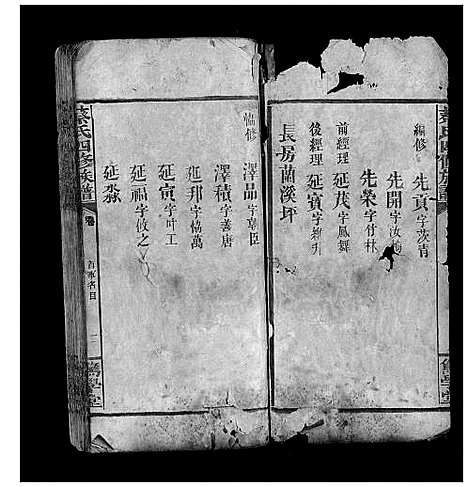 蔡氏四修族譜
編修 先貢字茨青
先開字汝
先榮字竹林
前經理 延茂字鳳舞
後經理 延賓字
長房蘭溪坪
協修 澤品字
澤積字善唐
延邦字協萬
延寅字叶工
延福字攸之
延淼
蔡氏四修族譜
卷
首事名目
二